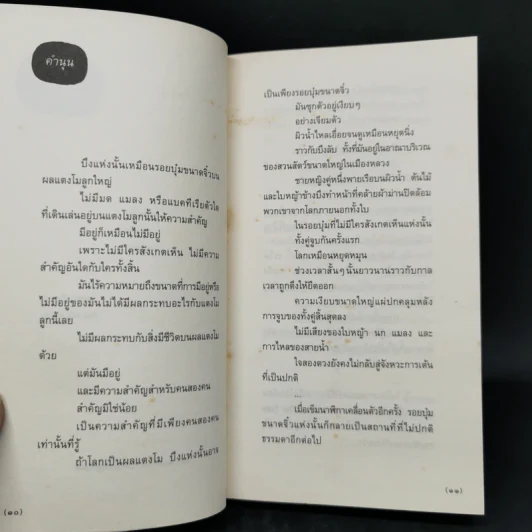 คำนุน
บึงแห่งนั้นเหมือนรอยบุ๋มขนาดจิ๋วบน
ผลแตงโมลูกใหญ่
ไม่มีมด แมลง หรือแบคทีเรียตัวใด
ที่เดินเล่นอยู่บนแตงโมลูกนั้นให้ความสำคัญ
มีอยู่ก็เหมือนไม่มีอยู่
เพราะไม่มีใครสังเกตเห็น ไม่มีความ
สำคัญอันใดกับใครทั้งสิ้น
มันไร้ความหมายถึงขนาดที่การมีอยู่หรือ
ไม่มีอยู่ของมันไม่ได้มีผลกระทบอะไรกับแตงโม
ลูกนี้เลย
ไม่มีผลกระทบกับสิ่งมีชีวิตบนผลแตงโม
ด้วย
แต่มันมีอยู่
และมีความสำคัญสำหรับคนสองคน
สำคัญมิใช่น้อย
เป็นความสำคัญที่มีเพียงคนสองคน
เท่านั้นที่รู้
ถ้าโลกเป็นผลแตงโม บึงแห่งนั้นอาจ
(๑๐)
เป็นเพียงรอยบุ๋มขนาดจิ๋ว
มันซุกตัวอยู่เงียบๆ
อย่างเจียมตัว
ผิวน้ำไหลเอื่อยจนดูเหมือนหยุดนิ่ง
ราวกับบึงลับ ทั้งที่มันอยู่ในอาณาบริเวณ
ของสวนสัตว์ขนาดใหญ่ในเมืองหลวง
ชายหญิงคู่หนึ่งพายเรือบนผิวน้ำ ต้นไม้
และใบหญ้าข้างบึงทำหน้าที่คล้ายผ้าม่านปิดล้อม
พวกเขาจากโลกภายนอกทั้งใบ
ในรอยบุ๋มที่ไม่มีใครสังเกตเห็นแห่งนั้น
ทั้งคู่จูบกันครั้งแรก
โลกเหมือนหยุดหมุน
ช่วงเวลาสั้นๆ นั้นยาวนานราวกับกาล
เวลาถูกดึงให้ยืดออก
ความเงียบขนาดใหญ่แผ่ปกคลุมหลัง
การจูบของทั้งคู่สิ้นสุดลง
ไม่มีเสียงของใบหญ้า นก แมลง และ
การไหลของสายน้ำ
ใจสองดวงยังคงไม่กลับสู่จังหวะการเต้น
ที่เป็นปกติ
...
เมื่อเข็มนาฬิกาเคลื่อนตัวอีกครั้ง รอยบุ๋ม
ขนาดจิ๋วแห่งนั้นก็กลายเป็นสถานที่ที่ไม่ปกติ
ธรรมดาอีกต่อไป
(๑๑)